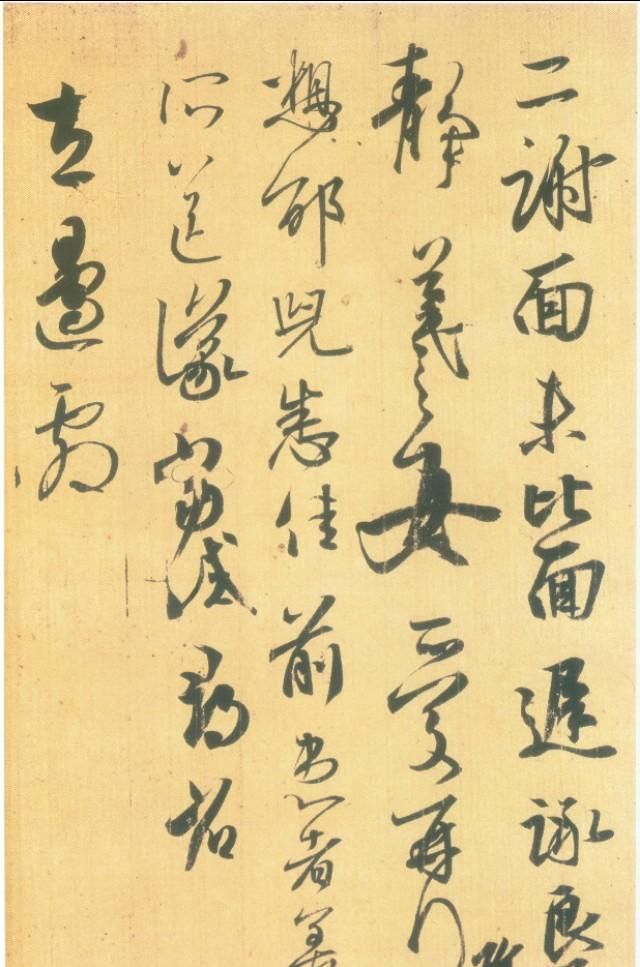 二謝面未比面遲詠良
靜羲之女愛再
想邵兒悉佳前患者善
所送議當試尋省
左邊劇